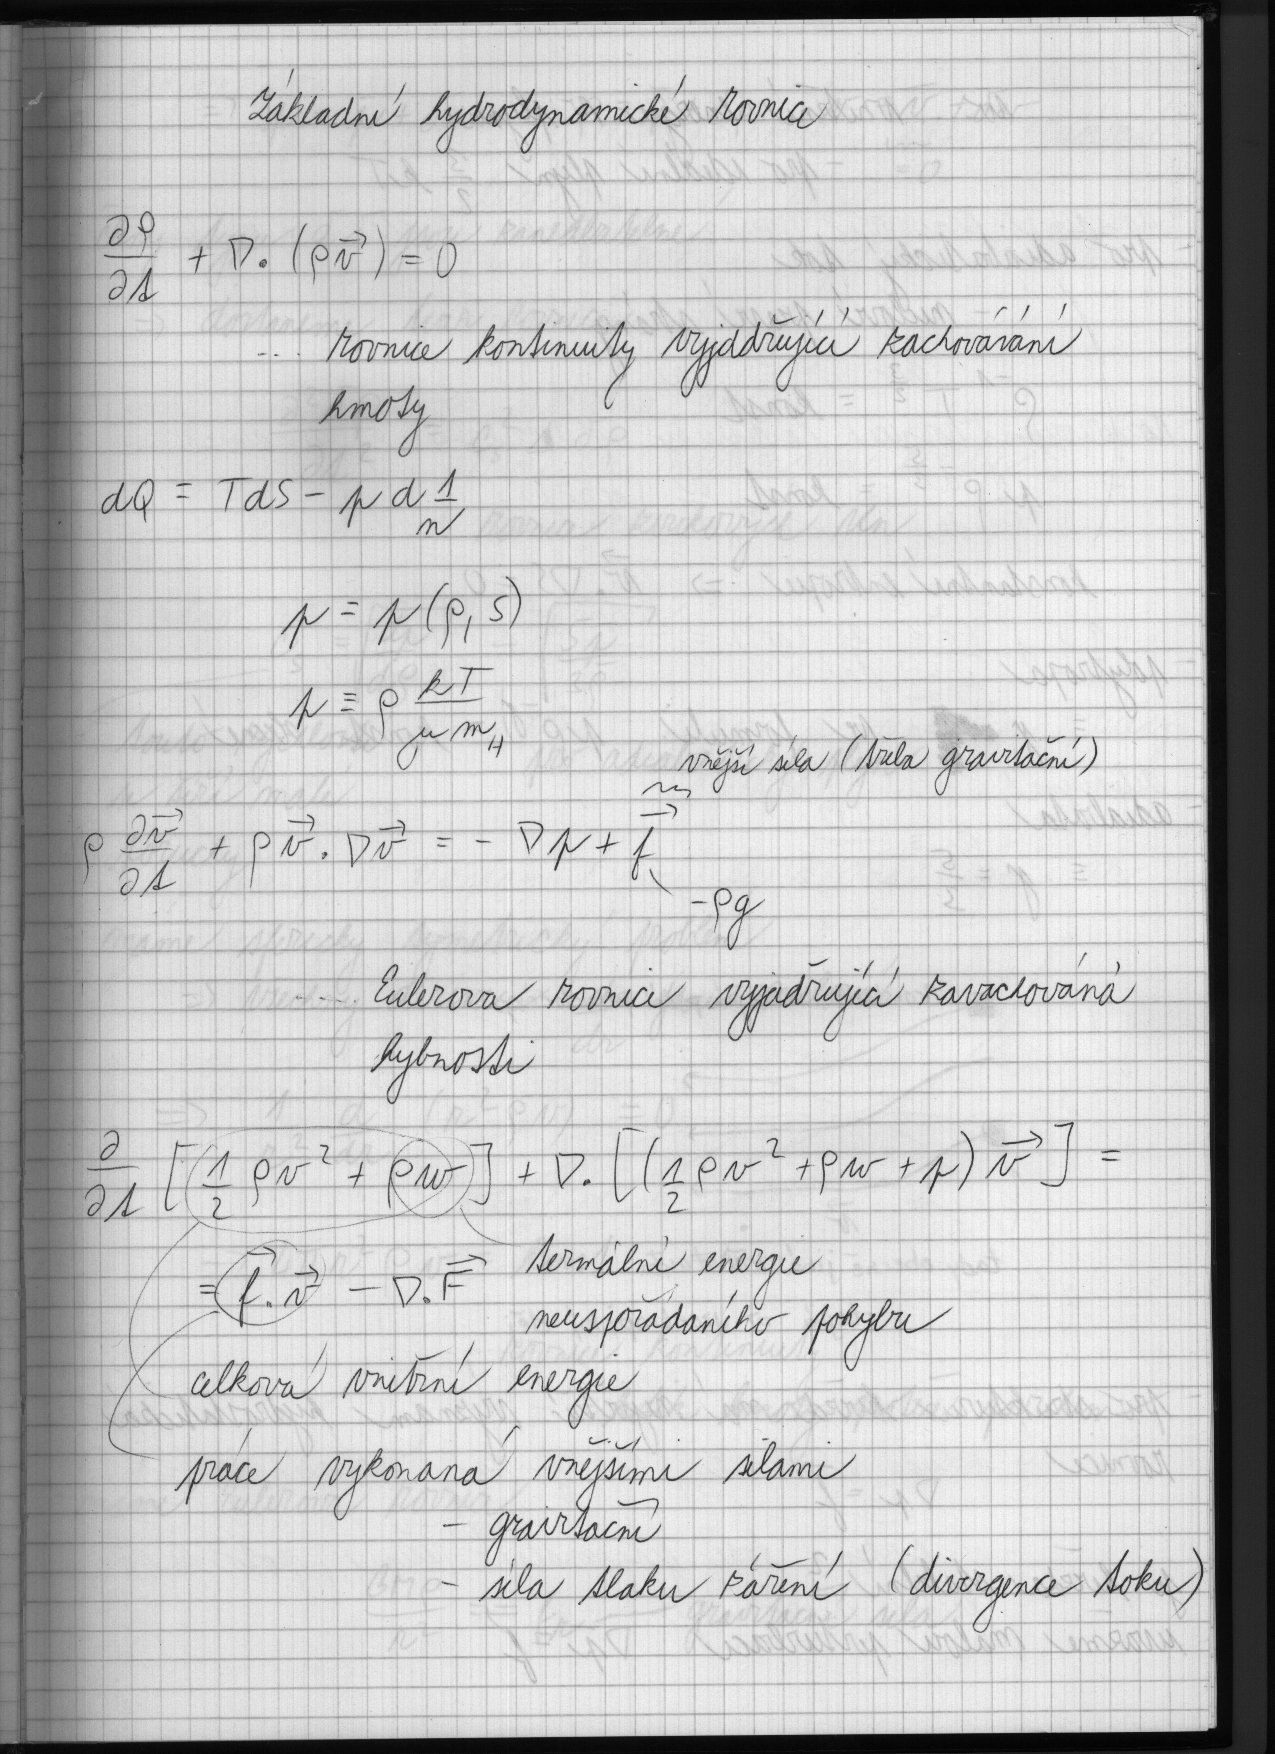 Základní hydrodynamické rovnice
∂ρ/∂t + ∇·(ρv⃗) = 0
... rovnice kontinuity vyjddřující zachovávání
hmoty
dQ = TdS - p d 1/n
p = p(ρ, S)
p ≡ ρ kT/μ m_H
vnější síla (třeba gravitační)
ρ ∂v⃗/∂t + ρv⃗·∇v⃗ = - ∇p + f⃗
-ρg
..... Eulerova rovnice vyjadřující
hybnosti
∂/∂t [(1/2 ρv² + ρw] + ∇·[(1/2 ρv² + ρw + p) v⃗] =
= f⃗·v⃗ - ∇·F⃗
termální energie
neuspořádaného pohybu
celková vnitřní energie
práce vykonaná vnějšími silami
- gravitační
- síla tlaku záření (divergence toku)